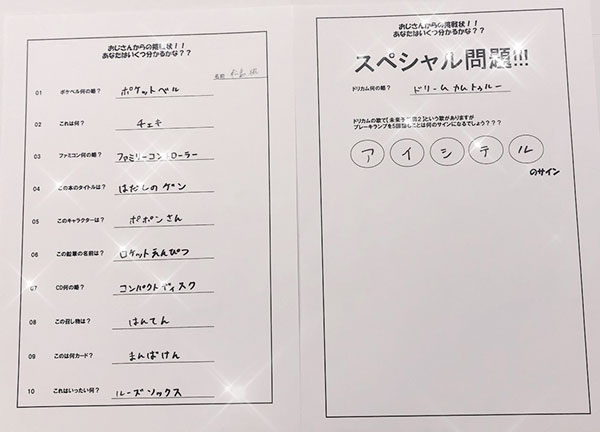 おじさんからの挑戦状！！
あなたはいくつ分かるかな？？
名前
01 ポケベル何の略？ ポケットベル
02 これは何？ チェキ
03 ファミコン何の略？ ファミリーコントローラー
04 この本のタイトルは？ はだしのゲン
05 このキャラクターは？ ポポンさん
06 この鉛筆の名前は？ ロケットえんぴつ
07 CD何の略？ コンパクトディスク
08 この召し物は？ はんてん
09 このは何カード？ まんばけん
10 これはいったい何？ ルーズソックス
おじさんからの挑戦状！！
あなたはいくつ分かるかな？？
スペシャル問題!!!
ドリカム何の略？ ドリームカムトゥルー
ドリカムの歌で【未来予想図2】という歌がありますが
ブレーキランプを5回踏むことは何のサインになるでしょう？？？
ア イ シ テ ル
のサイン